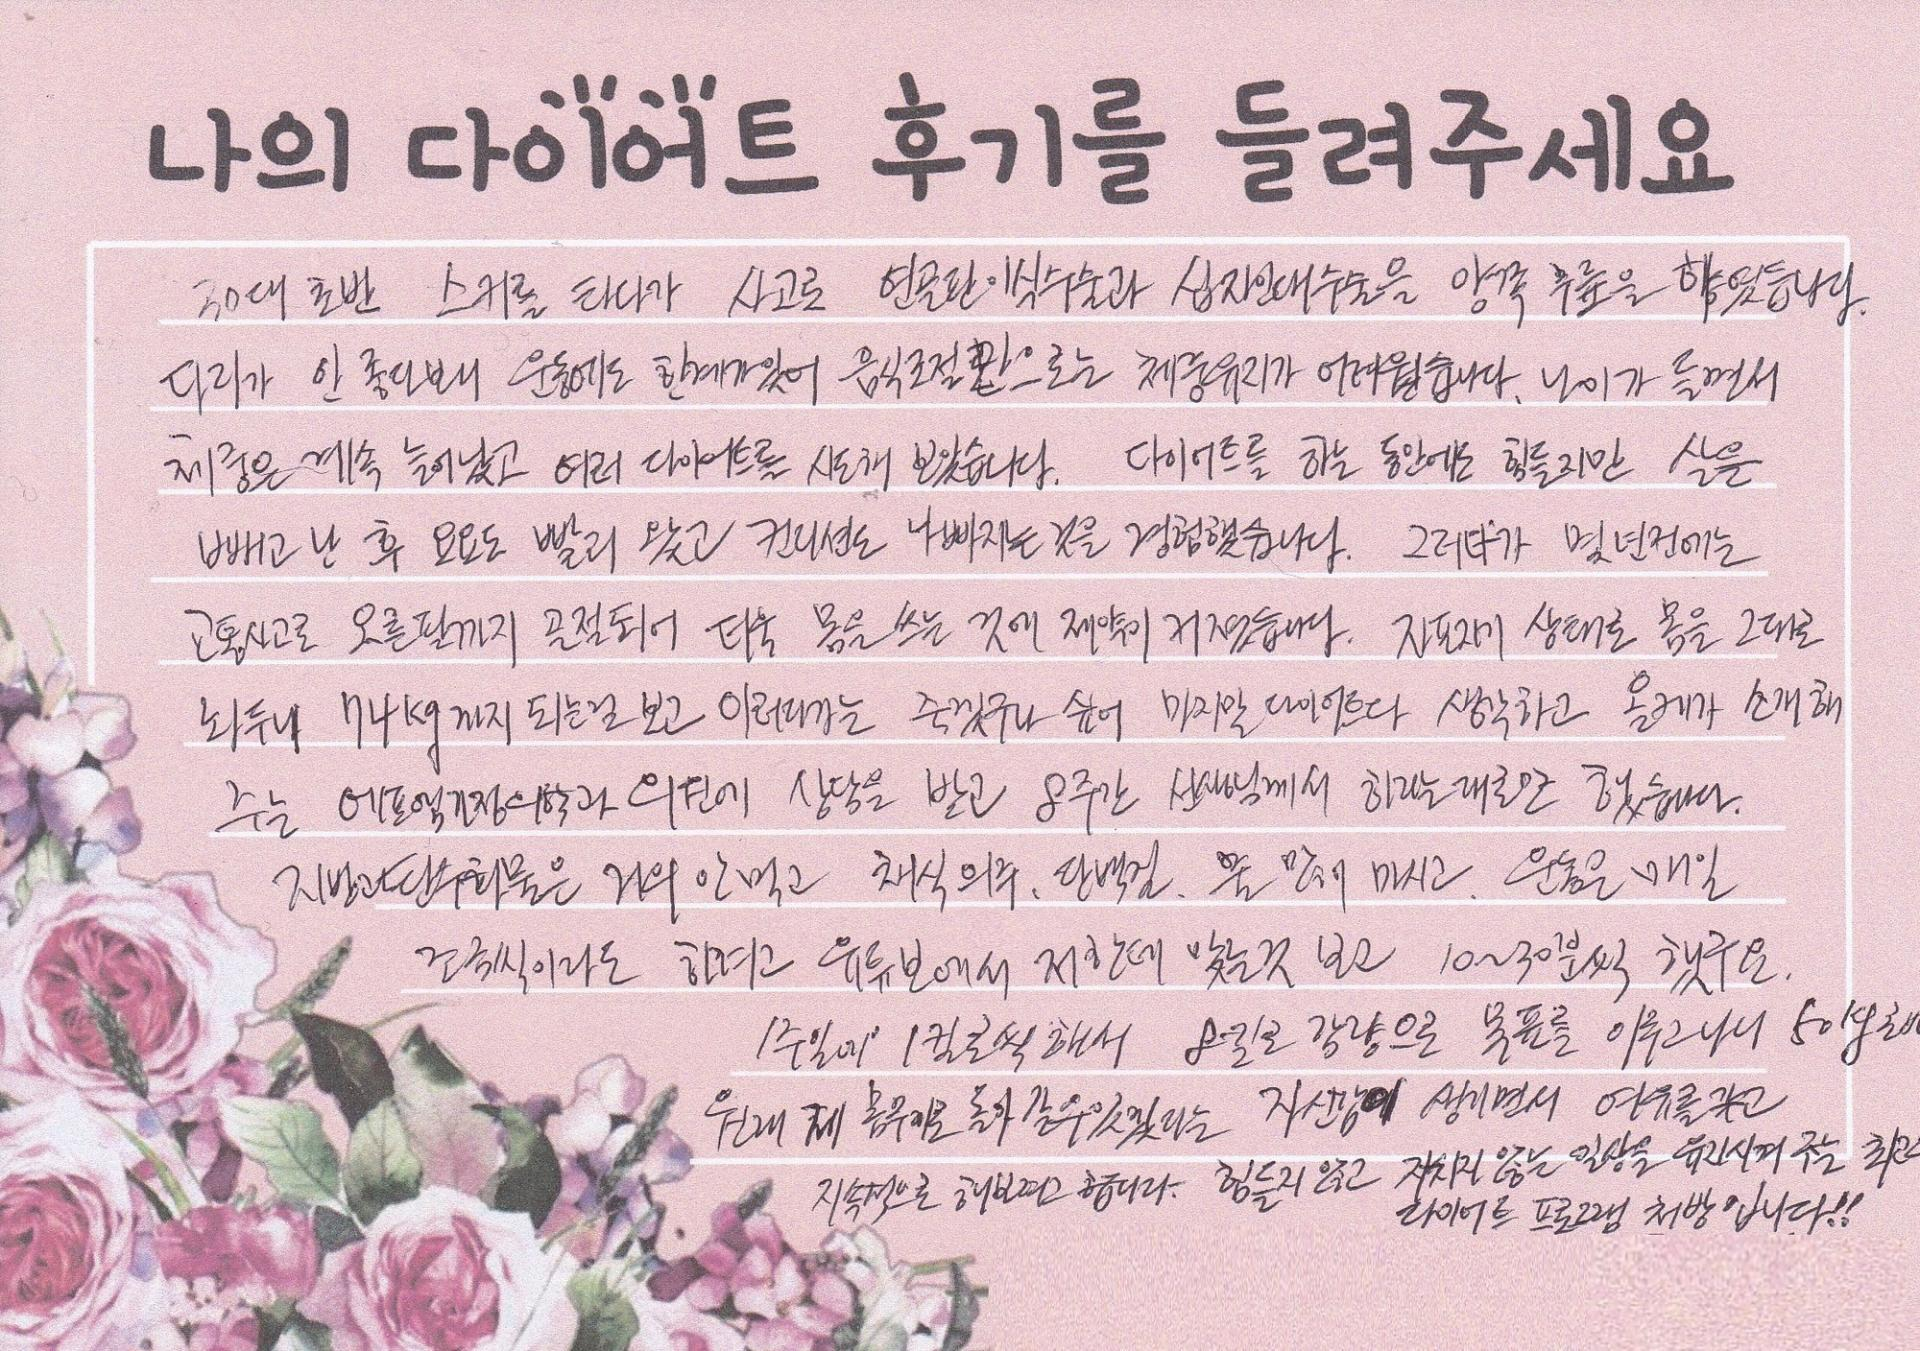 나의 다이어트 후기를 들려주세요
30대 초반 스키를 타다가 사고로 연골판이식수술과 십자인대수술을 양쪽 무릎을 하였습니다.
다리가 안 좋다보니 운동에도 한계가있어 음식조절만으로는 체중유지가 어려웠습니다. 나이가 들면서
체중은 계속 늘어났고 여러 다이어트를 시도해 보았습니다. 다이어트를 하는 동안에도 힘들지만 살을
빼고 난 후 요요도 빨리 왔고 컨디션도 나빠지는것을 경험했습니다. 그러다가 몇년전에는
교통사고로 오른팔까지 골절되어 더욱 몸을 쓰는 것에 제약이 커졌습니다. 자포자기 상태로 몸을 그대로
놔두니 74kg까지 되는걸 보고 이러다가는 죽겠구나 싶어 마지막 다이어트다 생각하고 올케가 소개해
주는 에포엑가정의학과의원에 상담을 받고 8주간 선생님께서 하라는대로만 했습니다.
지방과탄수화물은 거의 안먹고 채식위주, 단백질, 물 많이 마시고, 운동은 매일
조금씩이라도 하려고 유튜브에서 저한테 맞는것 보고 10~30분씩 했구요.
1주일에 1킬로씩 해서 8킬로 감량으로 목표를 이루고나니
원래 제 몸무게로 돌아갈수있겠다는 자신감이 생기면서 여유를갖고
지속적으로 해보려고 합니다. 힘들지 않고 지치지 않는 일상을 유지시켜 주는
다이어트 프로그램 처방입니다!!